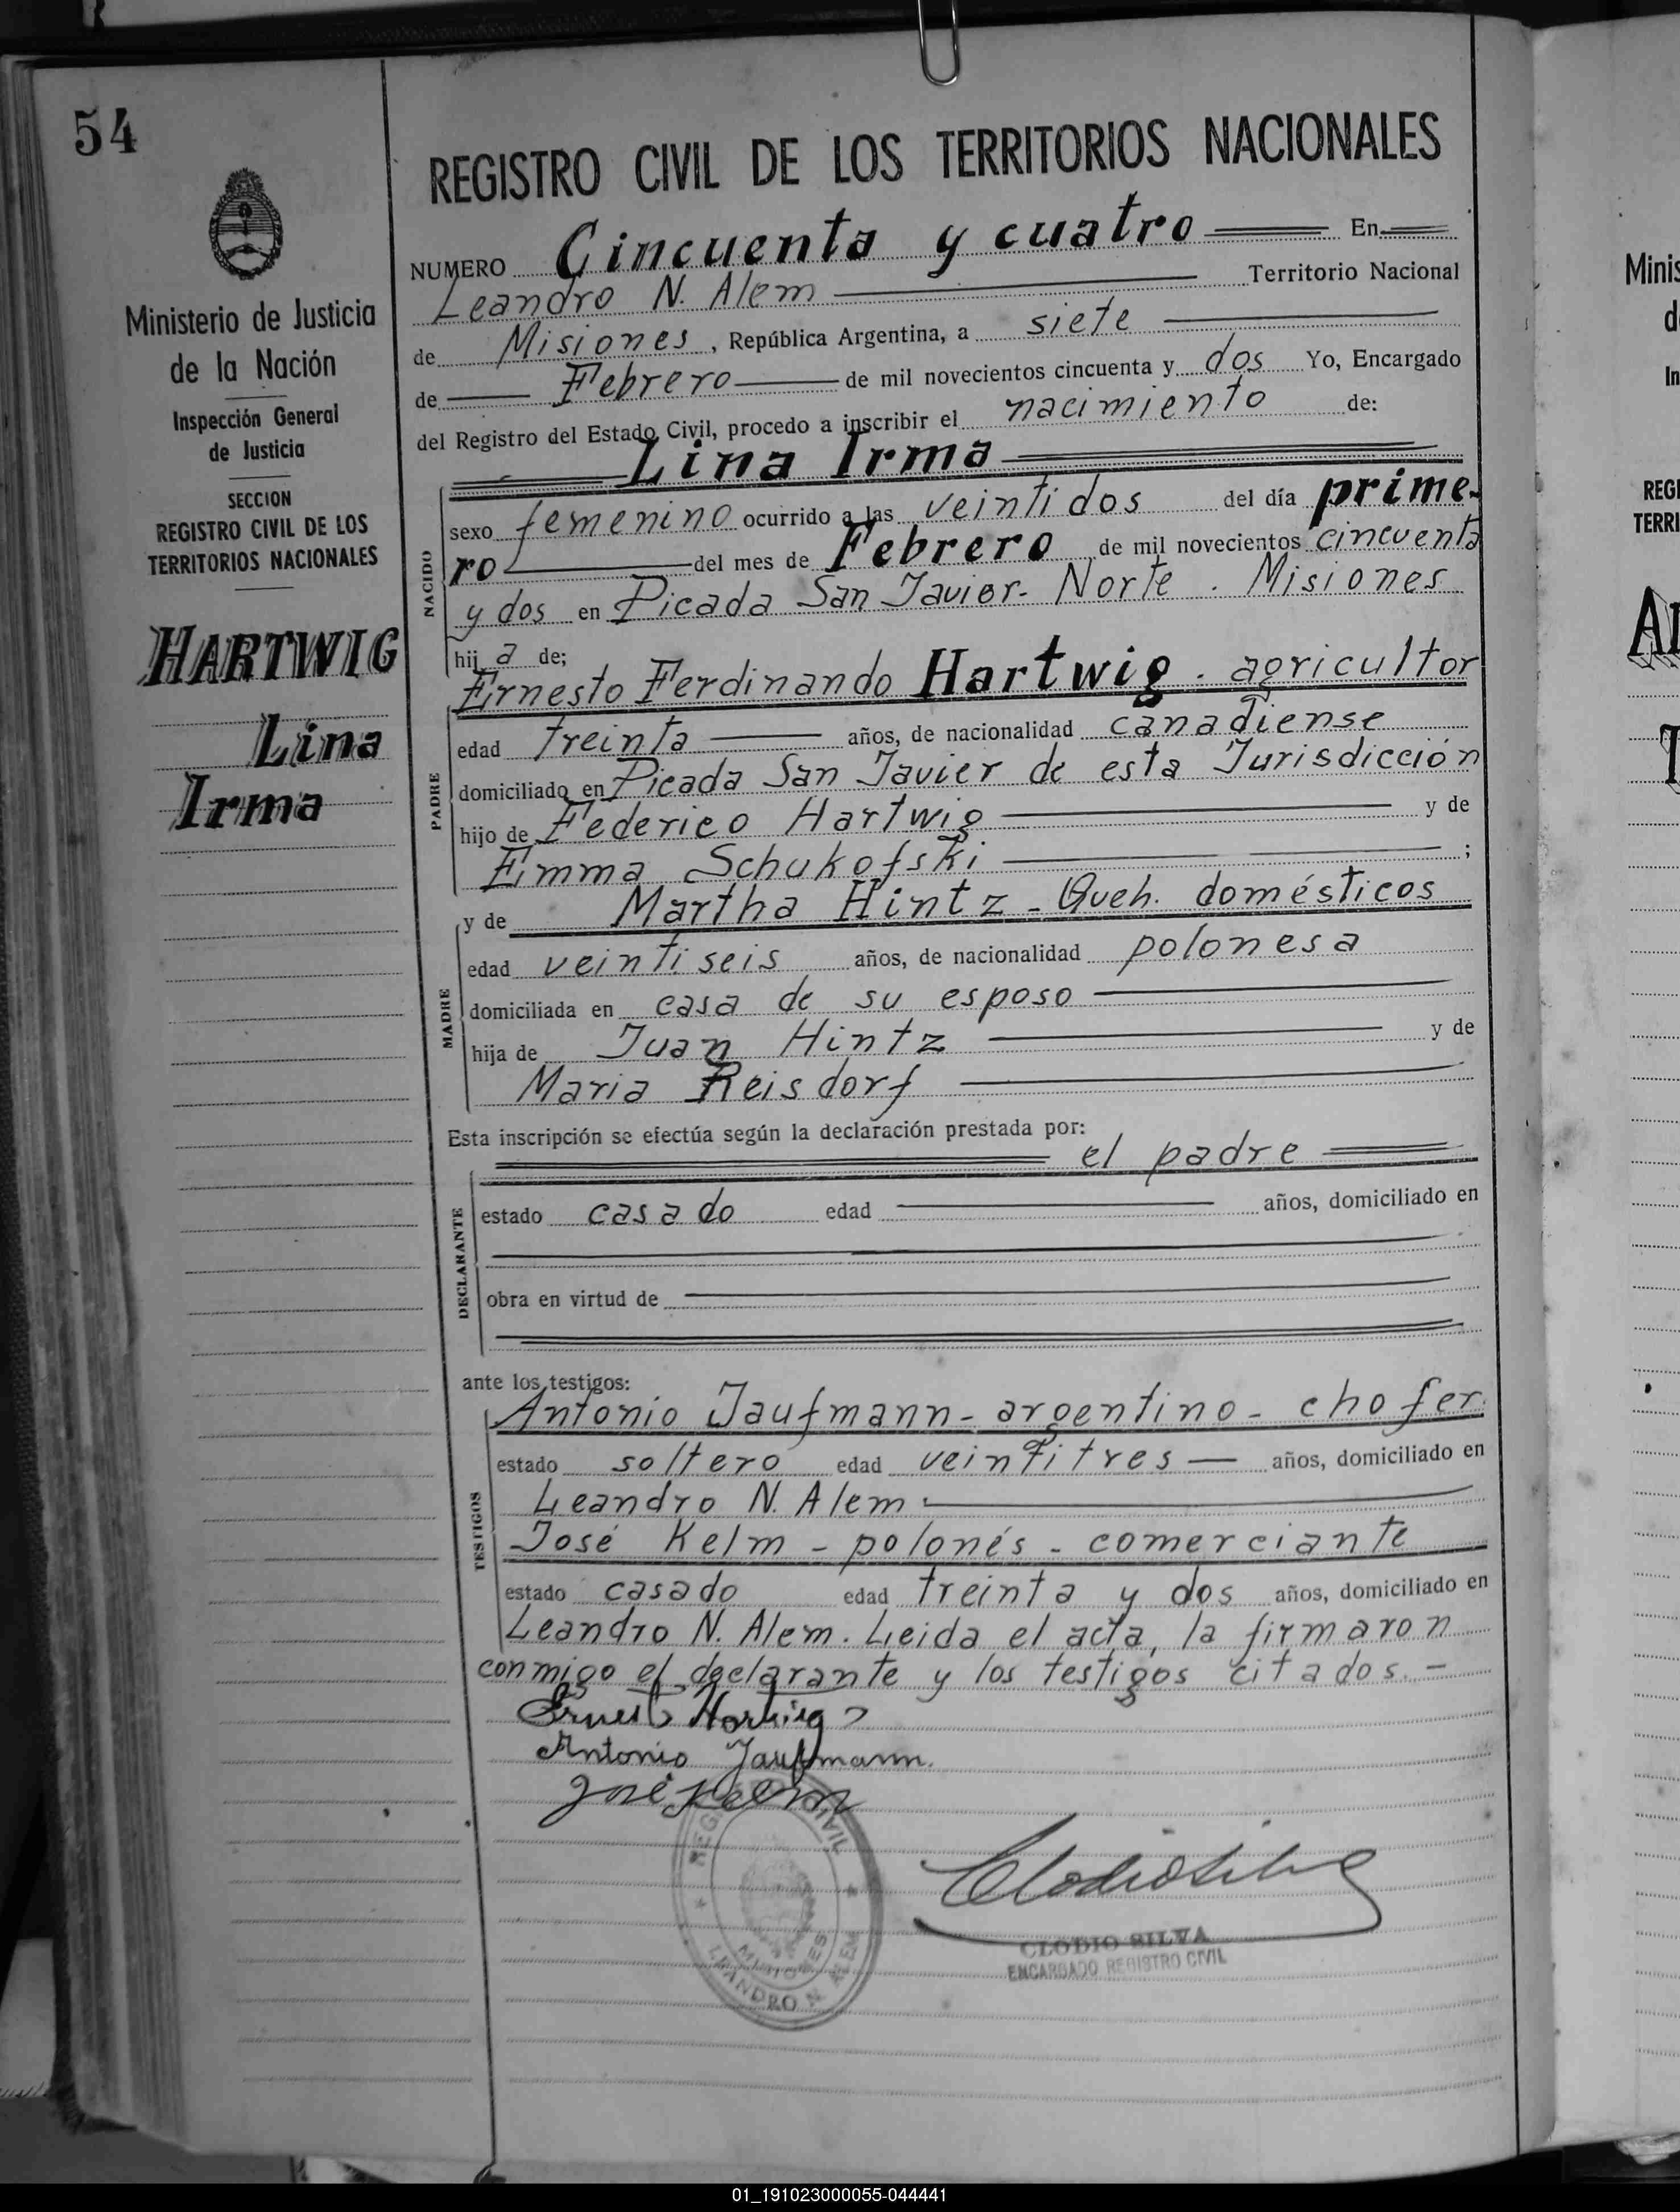 54
Ministerio de Justicia
de la Nación
Inspección General
de Justicia
SECCION
REGISTRO CIVIL DE LOS
TERRITORIOS NACIONALES
HARTWIG
Lina
Irma
REGISTRO CIVIL DE LOS TERRITORIOS NACIONALES
NUMERO Cincuenta y cuatro En
Leandro N. Alem Territorio Nacional
de Misiones, República Argentina, a siete
de Febrero de mil novecientos cincuenta y dos Yo, Encargado
del Registro del Estado Civil, procedo a inscribir el nacimiento de:
Lina Irma
NACIDO
sexo femenino ocurrido a las veintidos del día prime-
ro del mes de Febrero de mil novecientos cincuenta
y dos en Picada San Javier- Norte. Misiones
hija de;
Ernesto Ferdinando Hartwig. agricultor
PADRE
edad treinta años, de nacionalidad canadiense
domiciliado en Picada San Javier de esta Jurisdicción
hijo de Federico Hartwig y de
Emma Schukofski ;
y de Martha Hintz - Queh. domésticos
MADRE
edad veintiseis años, de nacionalidad polonesa
domiciliada en casa de su esposo
hija de Juan Hintz y de
Maria Reisdorf
Esta inscripción se efectúa según la declaración prestada por:
el padre
DECLARANTE
estado casado edad años, domiciliado en
obra en virtud de
ante los testigos:
Antonio Jaufmann - argentino - chofer.
TESTIGOS
estado soltero edad veintitres años, domiciliado en
Leandro N. Alem.
José Kelm - polonés - comerciante
estado casado edad treinta y dos años, domiciliado en
Leandro N. Alem. Leida el acta, la firmaron
conmigo el declarante y los testigos citados. -
Ernesto Hartwig
Antonio Jaufmann.
José Kelm
REGISTRO CIVIL
MISIONES
LEANDRO N. ALEM
Clodio Silva
CLODIO SILVA
ENCARGADO REGISTRO CIVIL
Minis
d
In
REGI
TERRI
01_191023000055-044441